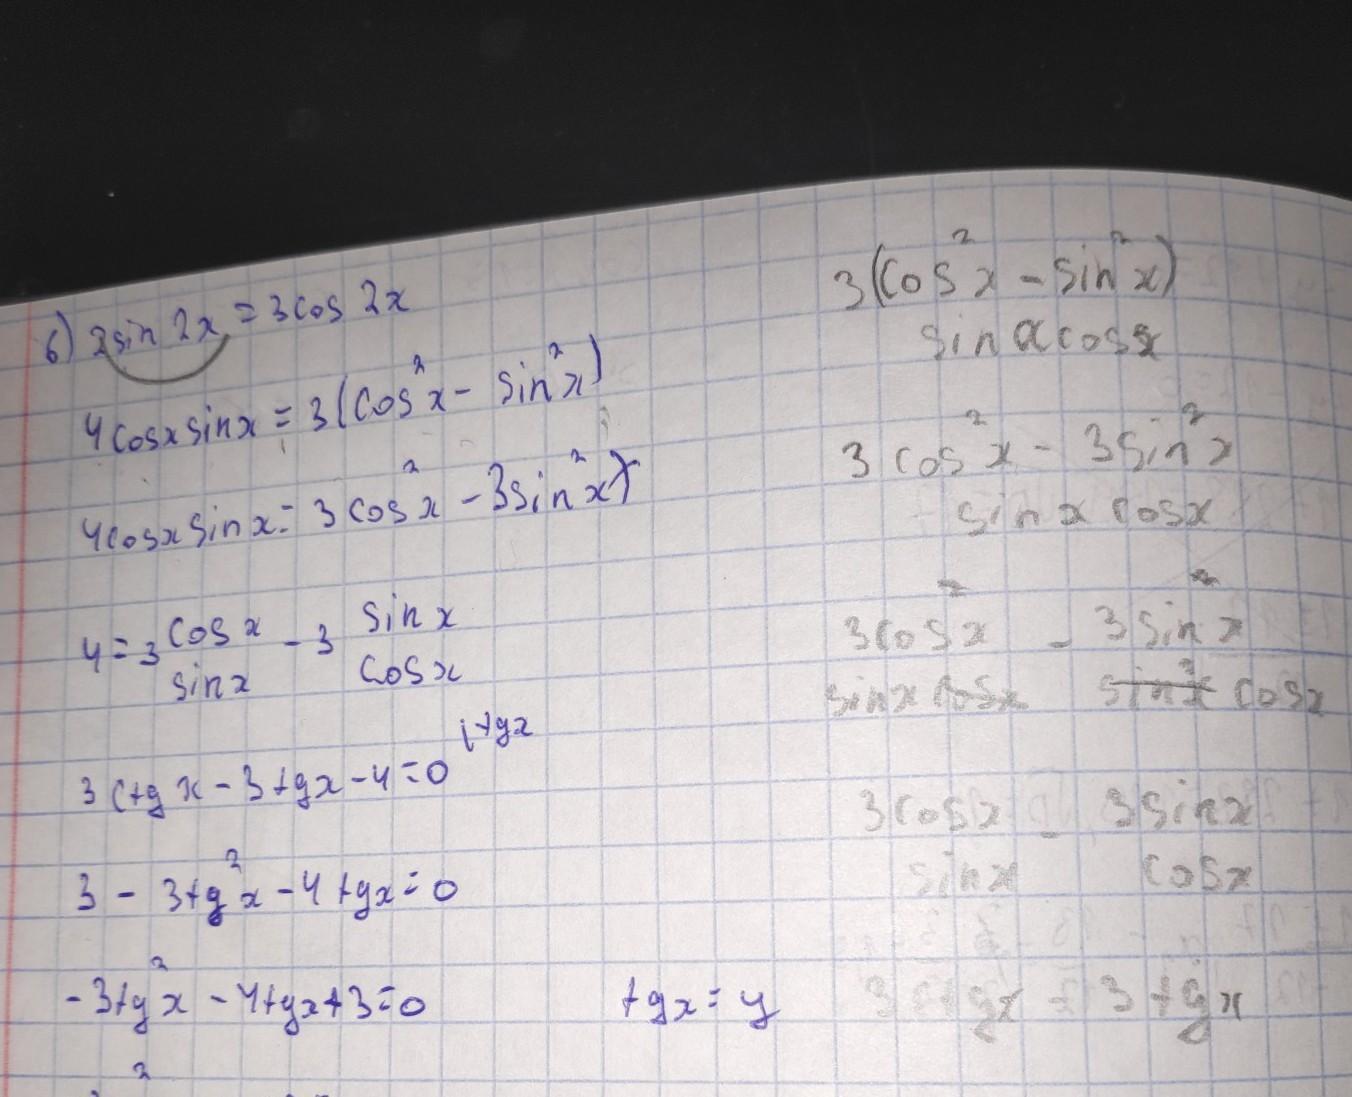 6) 2sin 2x = 3cos 2x
4cosx sinx = 3(cos²x - sin²x)
4cosx sinx = 3cos²x - 3sin²x)
4 = 3 cosx/sinx - 3 sinx/cosx
3ctgx - 3tgx - 4 = 0 | tgx
3 - 3tg²x - 4tgx = 0
-3tg²x - 4tgx + 3 = 0 tgx = y
3(cos²x - sin²x)
sin x cosx
3cos²x - 3sin²x
sinx cosx
3cos²x - 3sin²x
sinx cosx sinx cosx
3cosx - 3sinx
sinx cosx
3ctgx - 3tgx